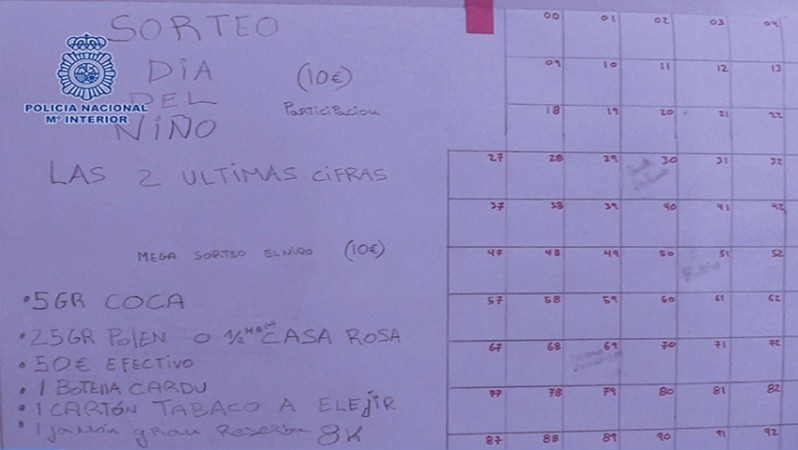 SORTEO
DIA
DEL
NIÑO
(10€)
Participacion
POLICIA NACIONAL
Mº INTERIOR
LAS 2 ULTIMAS CIFRAS
MEGA SORTEO EL NIÑO (10€)
• 5GR COCA
• 25GR POLEN O 1/2 CASA ROSA
• 50€ EFECTIVO
• 1 BOTELLA CARDU
• 1 CARTÓN TABACO A ELEJIR
• 1 jamón gran Reserba 8K
00 01 02 03 04
09 10 11 12 13
18 19 20 21 22
27 28 29 30 31 32
37 38 39 40 41 42
47 48 49 50 51 52
57 58 59 60 61 62
67 68 69 70 71 72
77 78 79 80 81 82
87 88 89 90 91 92